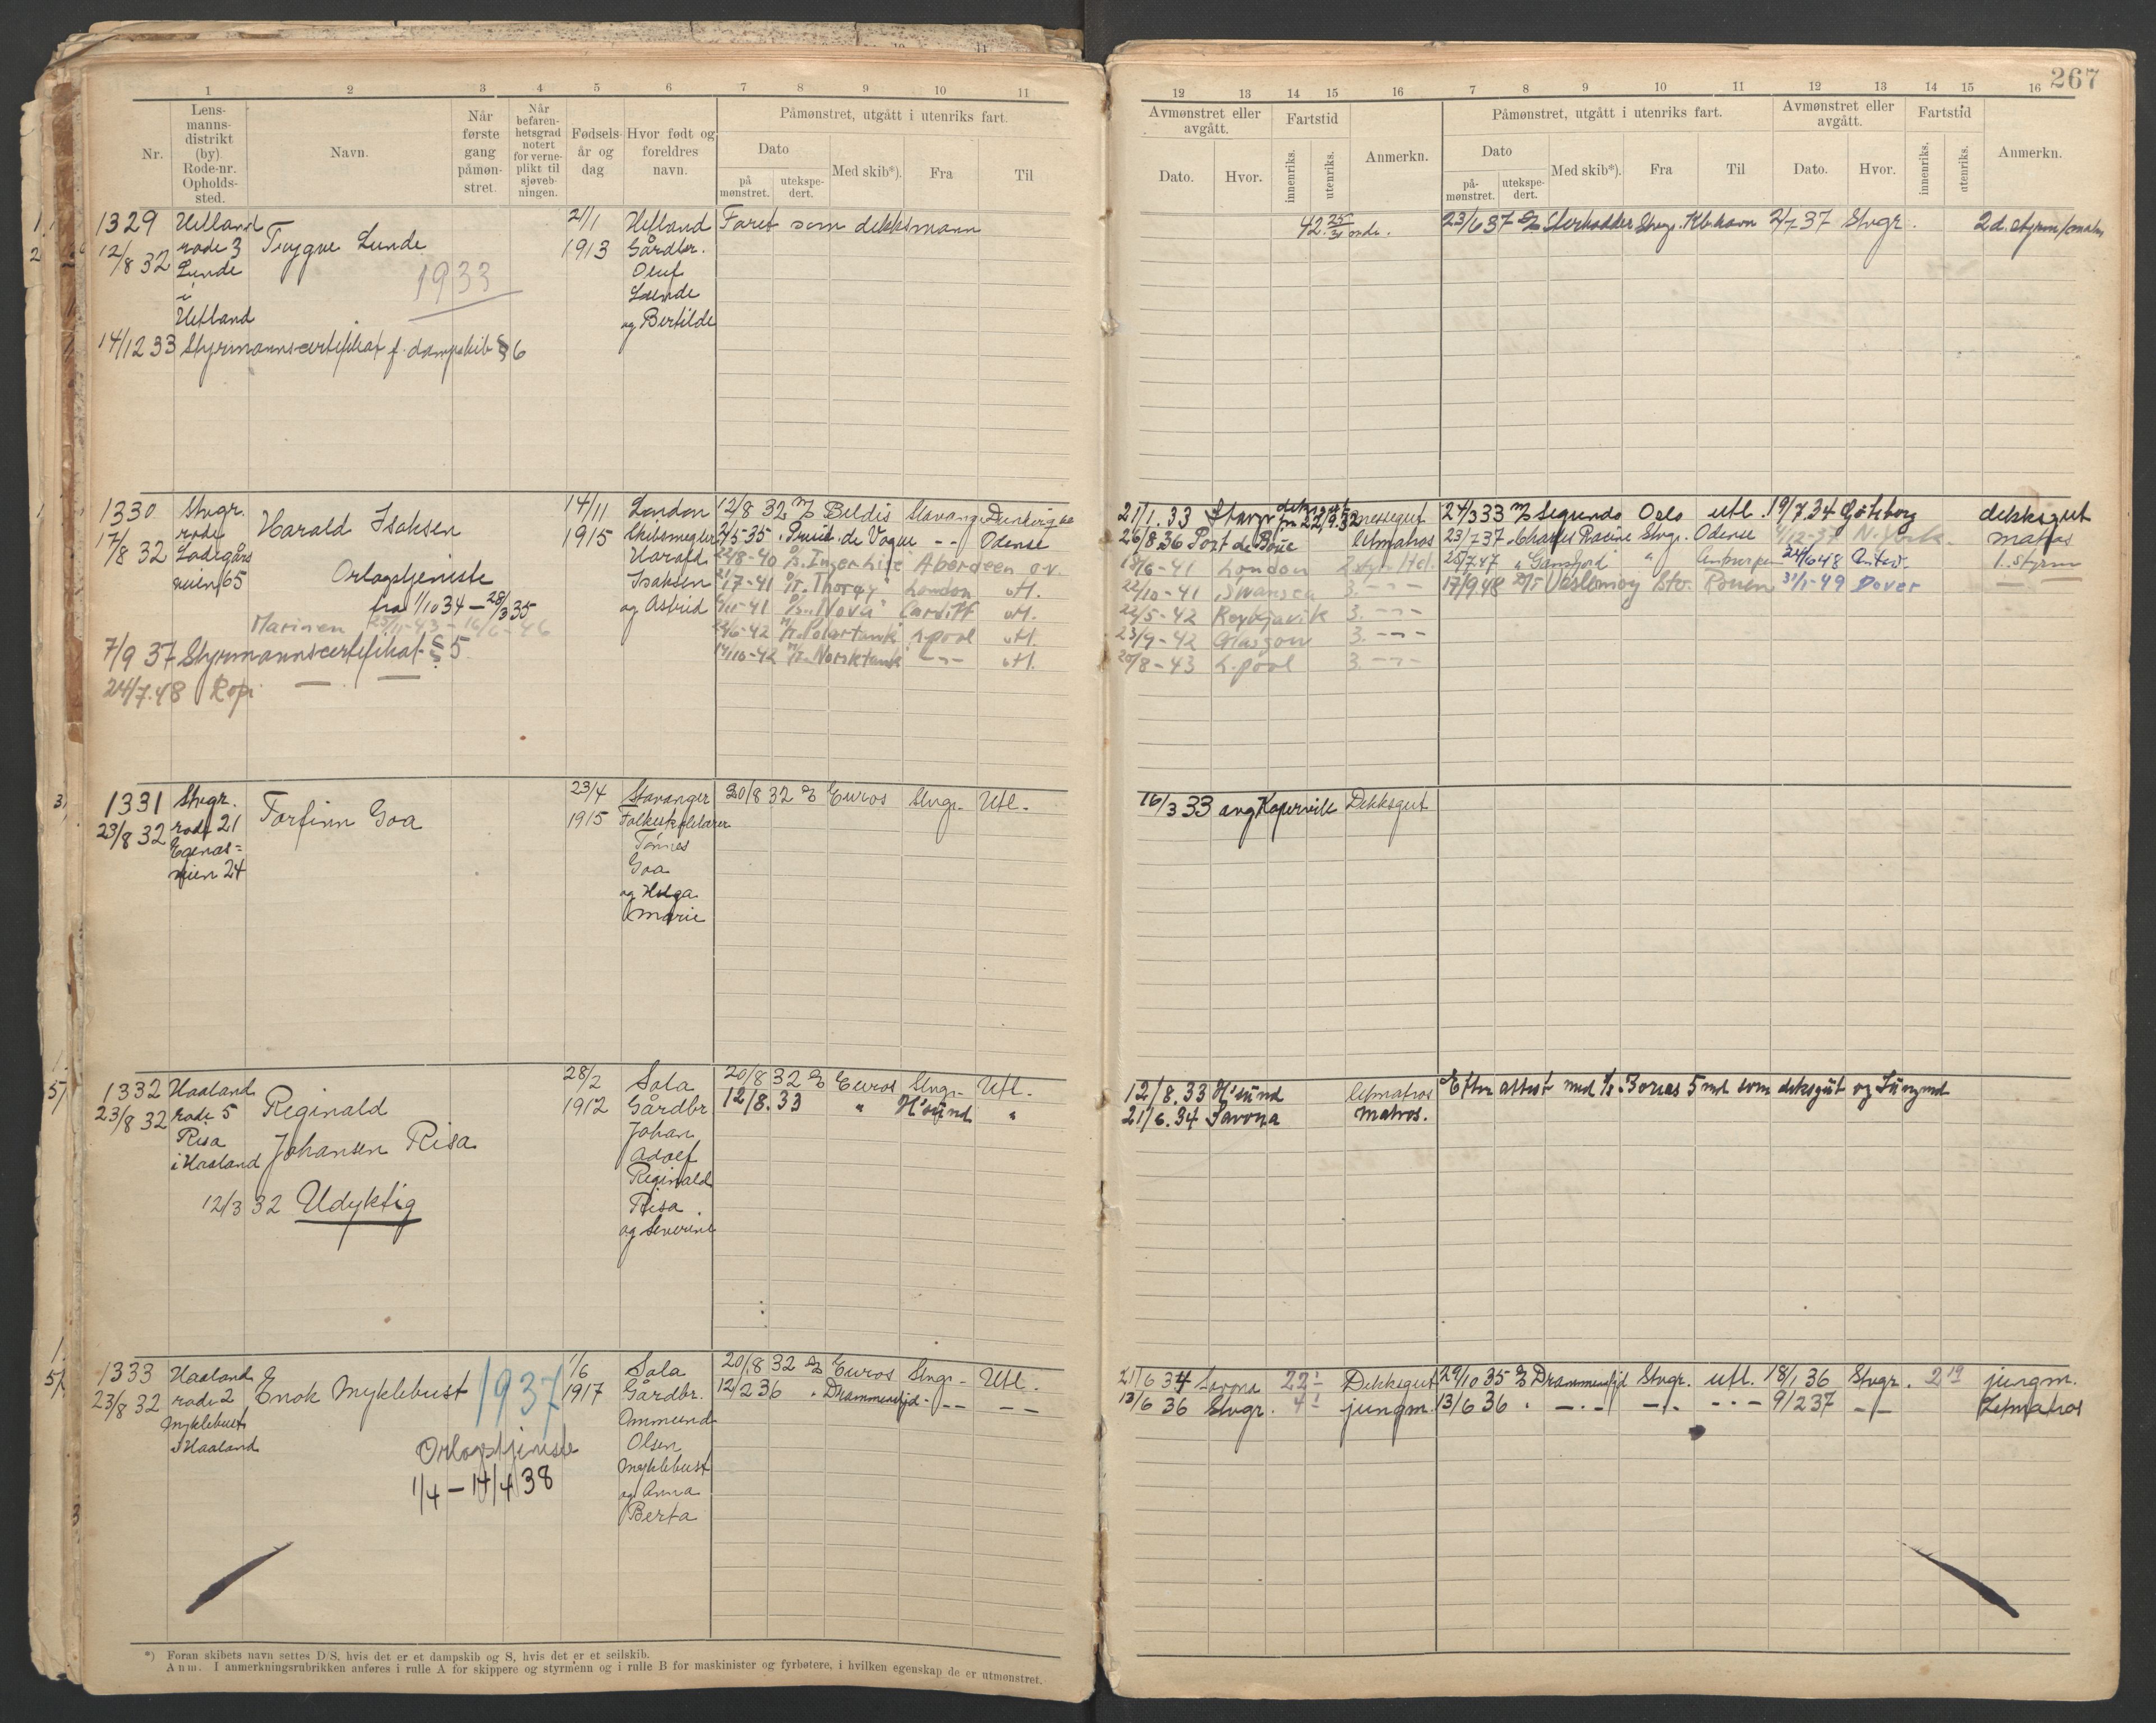 267
1 2 3 4 5 6 7 8 9 10 11
Nr.
Lens-
manns-
distrikt
(by)
Rode-nr.
Opholds-
sted.
Navn.
Når
første
gang
påmøn-
stret.
Når
befaren-
hetsgrad
notert
for verne-
plikt til
sjøveb-
ningen.
Fødsels-
år og
dag
Hvor født og
foreldres
navn.
Påmønstret, utgått i utenriks fart.
Dato
på
mønstret.
utekspe-
dert.
Med skib*).
Fra
Til
12 13 14 15 16 7 8 9 10 11 12 13 14 15 16
Avmønstret eller
avgått.
Dato.
Hvor.
Fartstid
innenriks.
utenriks.
Anmerkn.
Påmønstret, utgått i utenriks fart.
Dato
på-
mønstret.
utekspe-
dert.
Med skib*).
Fra
Til
Avmønstret eller
avgått.
Dato.
Hvor.
Fartstid
innenriks.
utenriks.
Anmerkn.
1329
12/8 32
Hetland
rode 3
Lunde
i
Hetland
Trygve Lunde
1933
21/1
1913
Hetland
Gårdbr.
Oluf
Lunde
og Bertilde
Faret som dekksmann
14/12 33 Styrmannscertifikat f. dampskib § 6
23/6 37 Sterkodder Stvgr. Kbhavn 2/7 37 Stvgr.
1330
17/8 32
Stvgr.
rode
Ladegårds
veien 65
Harald Isaksen
Orlogstjeniste
fra 1/10 34 - 28/3 35
Marinen 25/11-43 - 16/6-46
7/9 37 Styrmannscertifikat § 5
24/7.48 Kopi
14/11
1915
London
Skibsmegler
Harald
Isaksen
og Astrid
12/8 32 M/S Beldis Stavang.
2/5-35 Presid. de Vogue - - Odense
22/8-40 D/S Inger Lise Aberdeen o.v.
21/7-41 D/S Thorøy London utl.
6/11-41 D/S Nova Cardiff utl.
22/6-42 M/T Polartank L.pool utl.
14/10-42 M/T Norsktank - - - utl.
21/1.33 Stavgr messegut
26/8.36 Port de Bouc letmatros
13/6-41 London
22/10-41 Swansea 3. - - -
22/5-42 Reykjavik 3. - - -
23/9-42 Glasgow 3. - - -
20/8-43 L.pool 3. - - -
24/3 33 M/S Segundo Oslo utl. 19/7.34 Göteborg dekksgut
23/7 37 Charles Racine Stvgr. Odense 4/12-37 N.York matros
25/7.47 " Gansfjord " Antwerpen 24/6 48 Antw. 1. styrm
17/9.48 Veslemøy Sto. Rouen 31/1-49 Dover
1331
23/8 32
Stvgr.
rode 21
Egenæs=
veien 24
Torfinn Goa
23/4
1915
Stavanger
Folkeskolelærer
Tønnes
Goa
og Helga
Marie
20/8 32 Euros Stvgr. Utl.
16/3 33 ang Kopervik Dekksgut
1332
23/8 32
Haaland
rode 5
Risa
i Haaland
Reginald
Johansen Risa
12/3 32 Udyktig
28/2
1912
Sola
Gårdbr
Johan
Adolf
Reginald
Risa
og Severine
20/8 32 Euros Stvgr. Utl.
12/8.33 " H'sund "
12/8.33 H'sund letmatros
21/6.34 Savona matros.
Efter attest med 5 md som deksgut og Jungmd
1333
23/8 32
Haaland
rode 2
Myklebust
i Haaland
Enok Myklebust
1937
Orlogstjeniste
1/4 - 14/4 38
1/6
1917
Sola
Gårdbr.
Ommund
Olsen
Myklebust
og Anna
Berta
20/8 32 Euros Stvgr. Utl.
12/2 36 " Drammensfjd. - - - -
21/6 34 Savona 22 Dekksgut 29/10 35 Drammensfjd Stvgr. utl. 18/1 36 Stvgr. 2 19 jungm.
13/6 36 Stvgr. 4 jungm. 13/6 36 " - - - - - - 9/2 37 - - Letmatros
*) Foran skibets navn settes D/S, hvis det er et dampskib og S, hvis det er et seilskib.
Anm. I anmerkningsrubrikken anføres i rulle A for skippere og styrmenn og i rulle B for maskinister og fyrbøtere, i hvilken egenskap de er utmønstret.